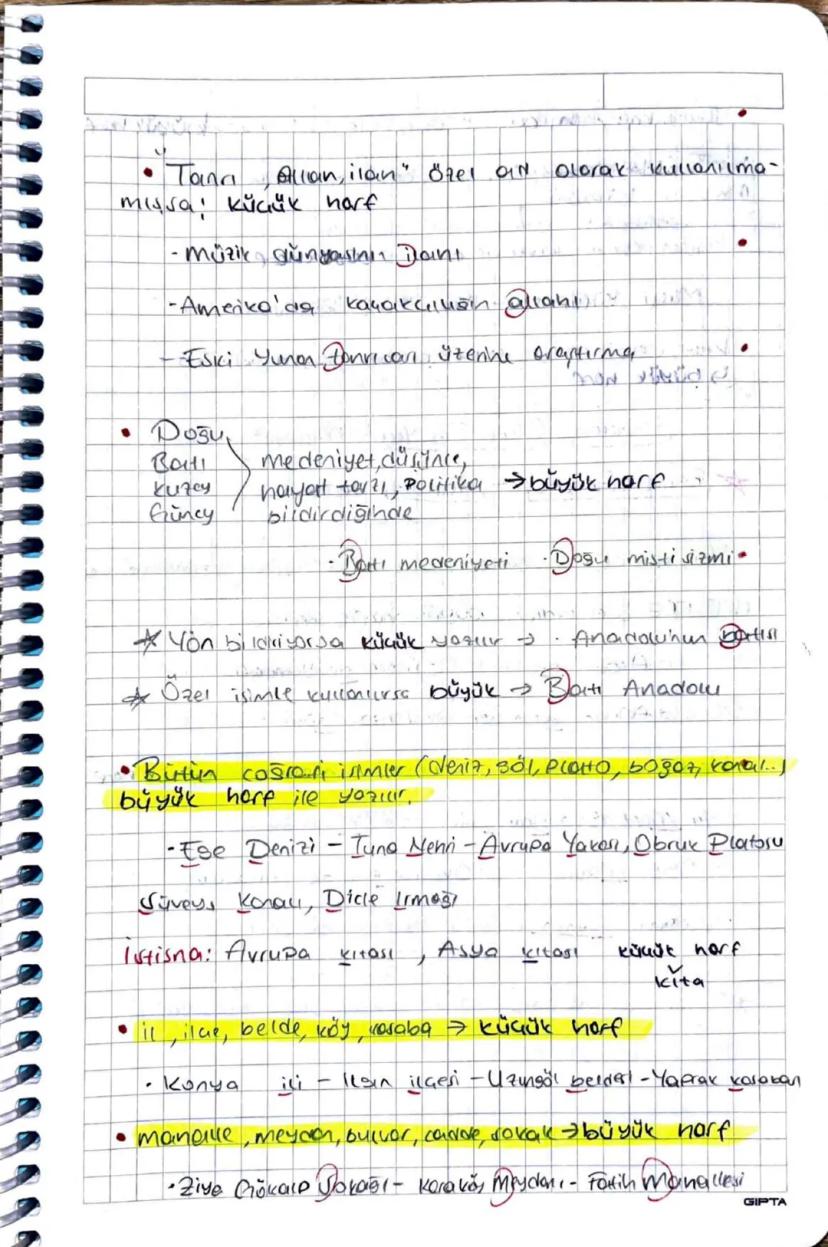 • "Tanrı, Allah, ilah" özel ad olarak kullanılma-
mışsa! küçük harf
- Müzik dünyasının ilahı
- Amerika'da kaçakçılığın allahı
- Eski Yunan tanrıları üzerine araştırma
• Doğu
Batı medeniyet, düşünce,
Kuzey hayat tarzı, politika → büyük harf
Güney bildirdiğinde
· Batı medeniyeti · Doğu mistisizmi
☆ Yön bildiriyorsa küçük yazılır → · Anadolu'nun batısı
☆ Özel isimle kullanılırsa büyük → Batı Anadolu
• Bütün coğrafi isimler (deniz, göl, plato, boğaz, kanal..)
büyük harf ile yazılır.
· Ege Denizi - Tuna Nehri - Avrupa Yakası, Obruk Platosu
Süveyş Kanalı, Dicle Irmağı
İstisna: Avrupa kıtası, Asya kıtası küçük harf
kıta
• il, ilçe, belde, köy, kasaba → küçük harf
· Konya ili - Ilgın ilçesi - Uzungöl beldesi - Yaprak kasabası
• mahalle, meydan, bulvar, cadde, sokak → büyük harf
· Ziya Gökalp Sokağı - Karaköy Meydanı - Fatih Mahallesi
GIPTA